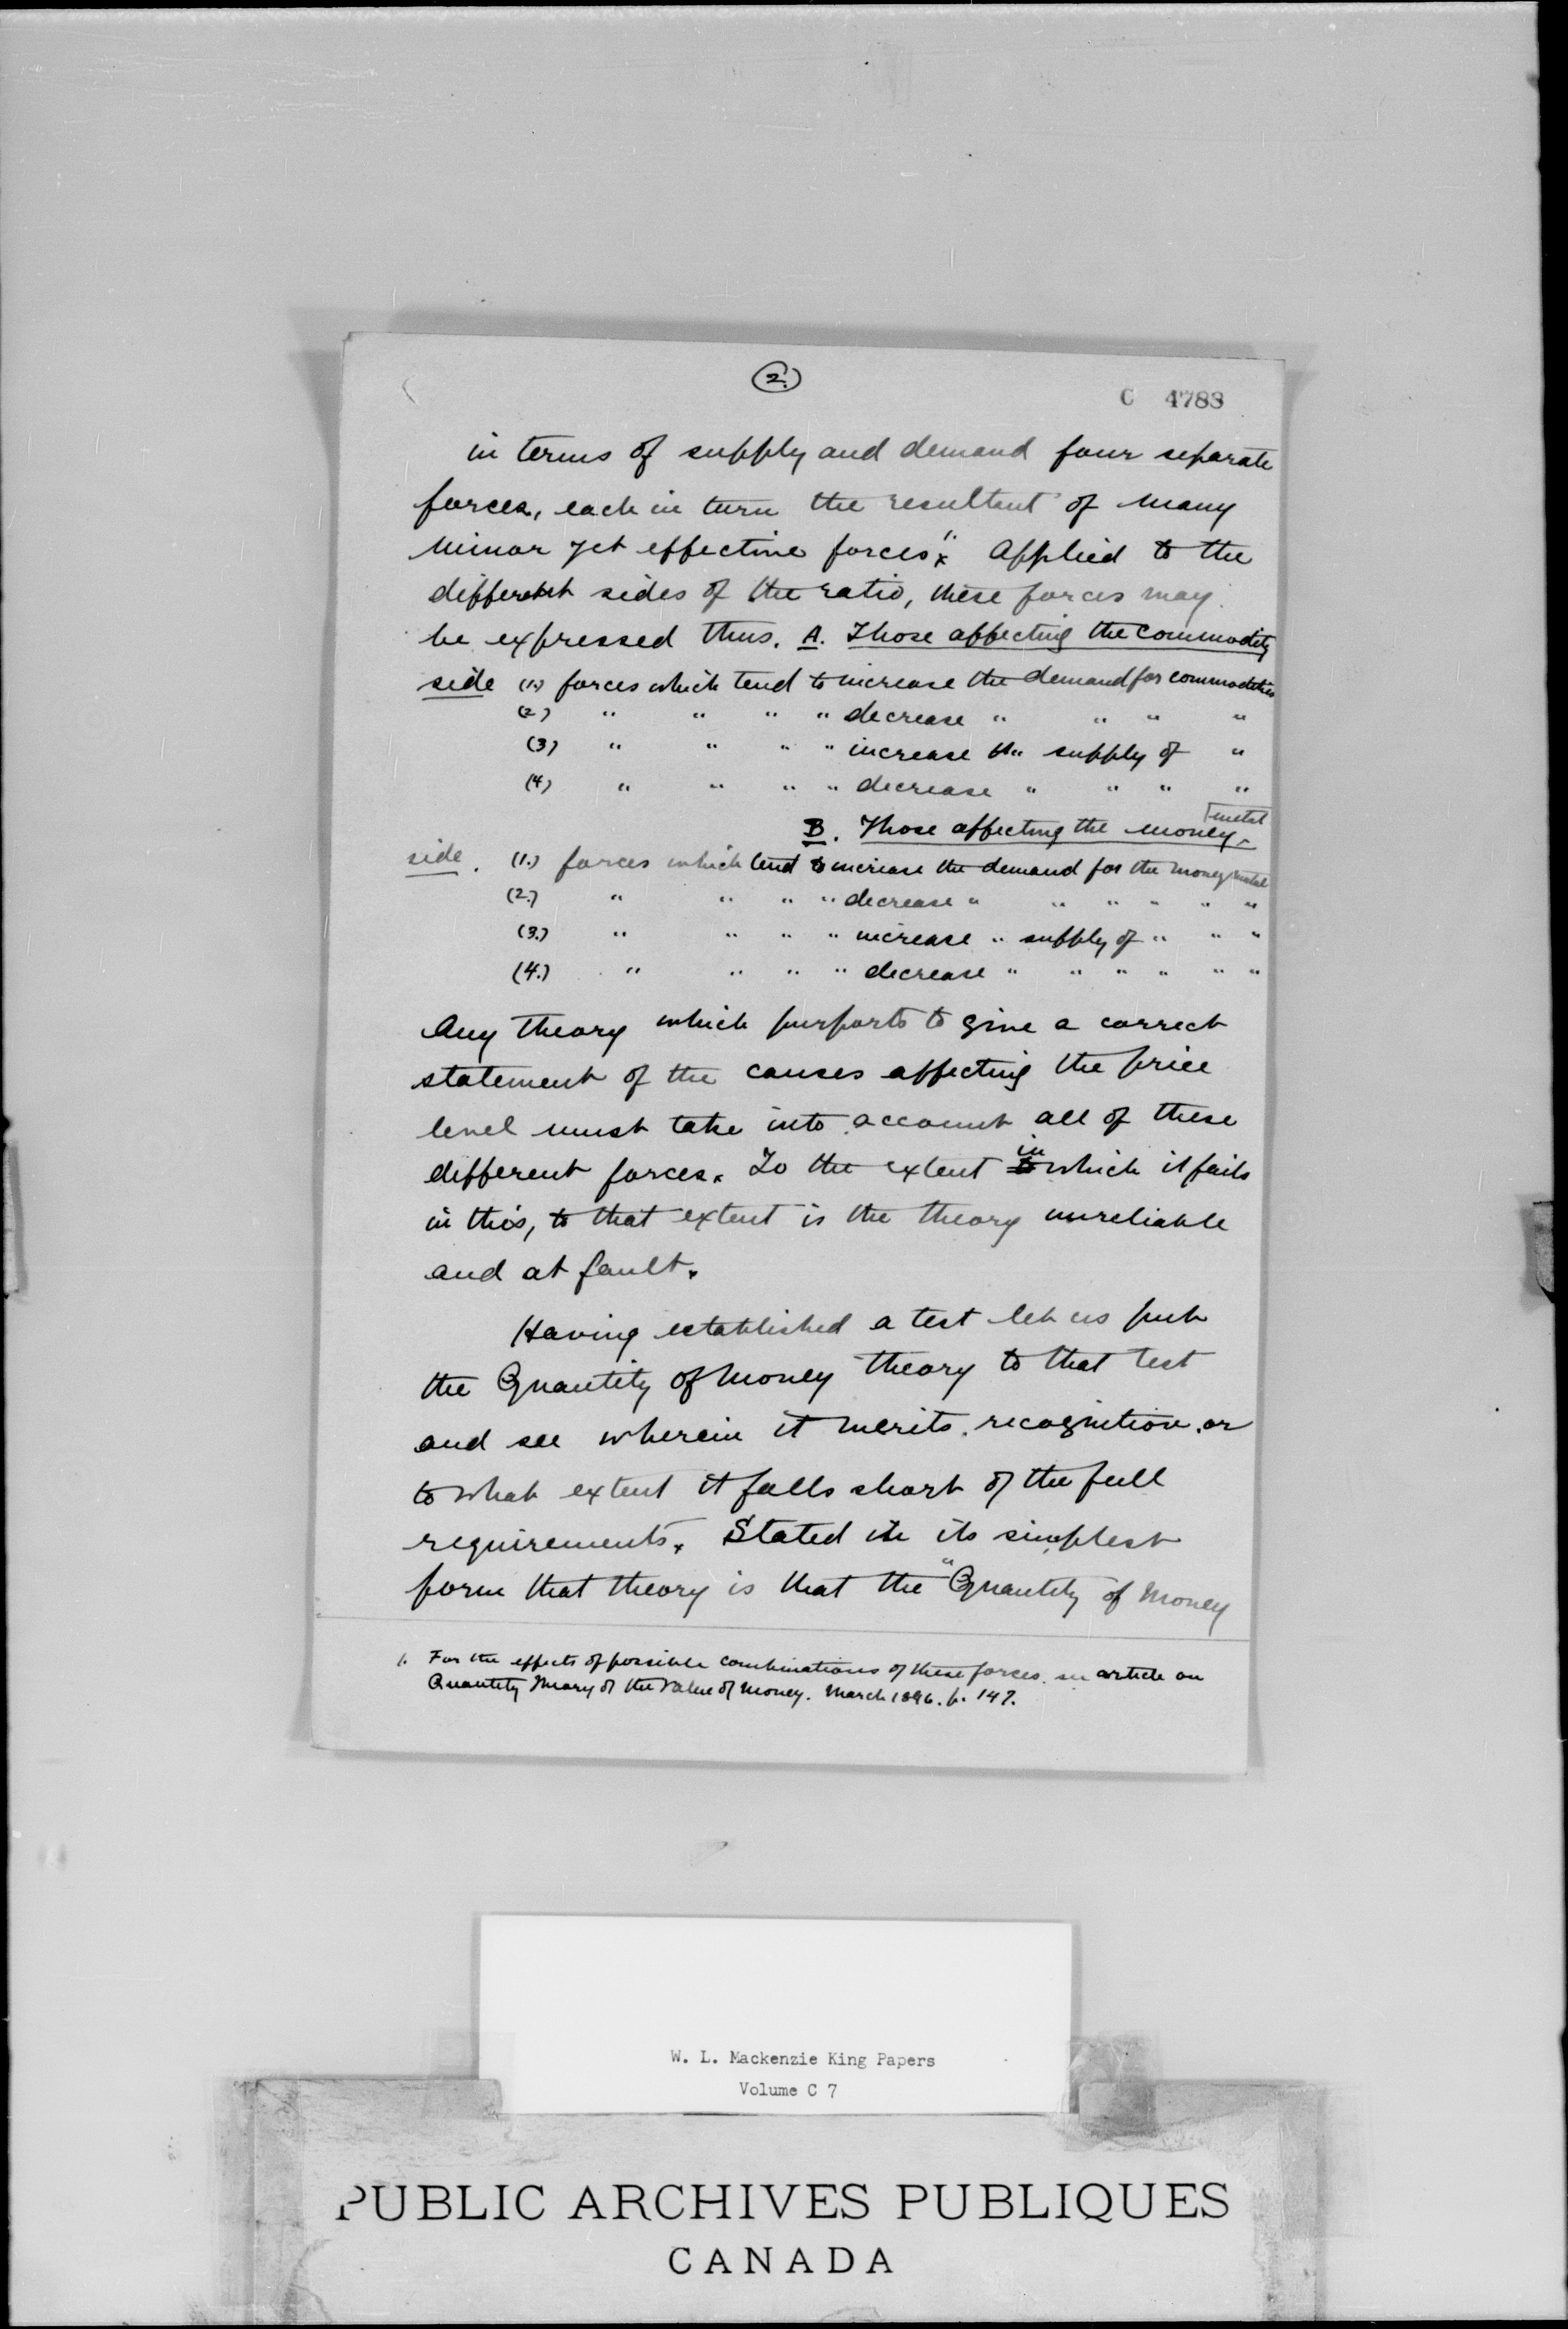 2.
C 4783
in terms of supply and demand four separate
forces, each in turn the resultant of many
minor yet effective forces". Applied to the
different sides of the ratio, these forces may
be expressed thus. A. Those affecting the commodity
side (1.) forces which tend to increase the demand for commodities
(2) " " " " decrease " " " "
(3) " " " " increase the supply of "
(4) " " " " decrease " " " "
B. Those affecting the money metal
side. (1.) forces which tend to increase the demand for the money metal
(2.) " " " " decrease " " " " " "
(3.) " " " " increase " supply of " " "
(4.) " " " " decrease " " " " " "
Any theory which purports to give a correct
statement of the causes affecting the price
level must take into account all of these
different forces. To the extent in which it fails
in this, to that extent is the theory unreliable
and at fault.
Having established a test let us put
the Quantity of Money theory to that test
and see wherein it merits recognition or
to what extent it falls short of the full
requirements. Stated in its simplest
form that theory is that the "Quantity of Money
1. For the effects of possible combinations of these forces see article on
Quantity Theory of the Value of Money. March 1896. p. 147.
W. L. Mackenzie King Papers
Volume C 7
PUBLIC ARCHIVES PUBLIQUES
CANADA